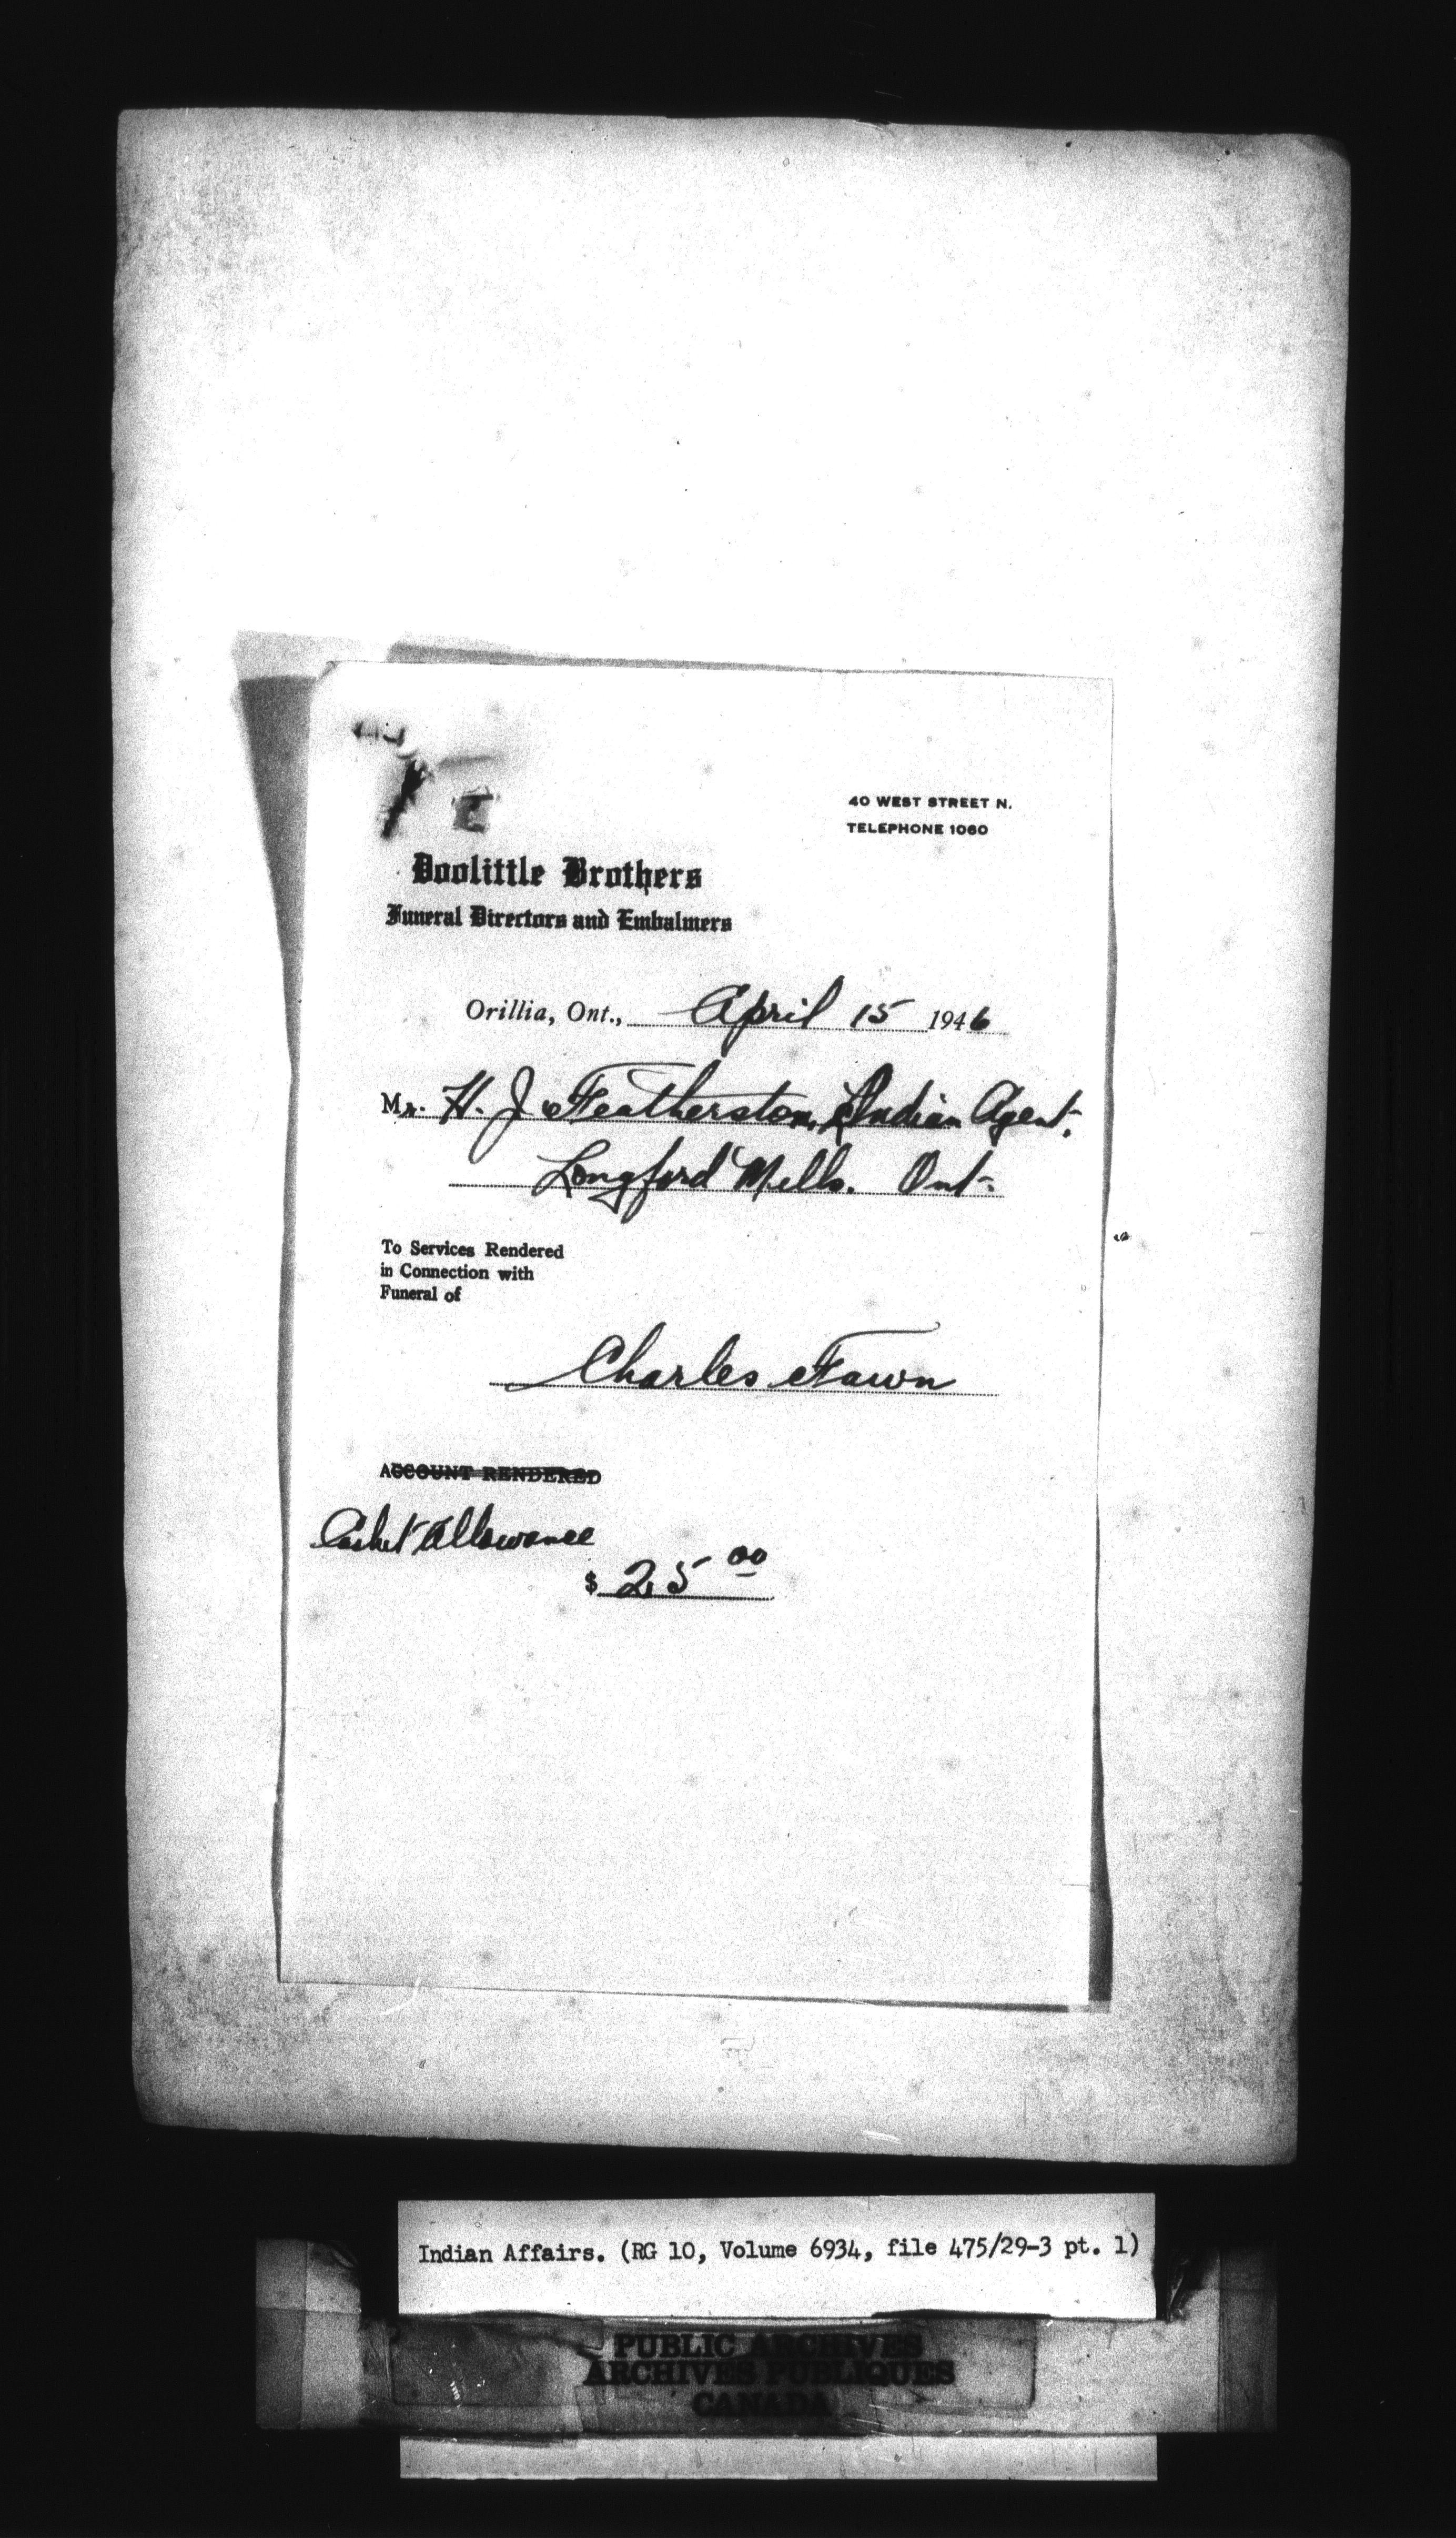 40 WEST STREET N.
TELEPHONE 1060
Doolittle Brothers
Funeral Directors and Embalmers
Orillia, Ont., April 15 1946
Mr. H. J. Featherston, Indian Agent,
Longford Mills. Ont.
To Services Rendered
in Connection with
Funeral of
Charles Fawn
ACCOUNT RENDERED
Casket Allowance
$ 25 00
Indian Affairs. (RG 10, Volume 6934, file 475/29-3 pt. 1)
PUBLIC ARCHIVES
ARCHIVES PUBLIQUES
CANADA